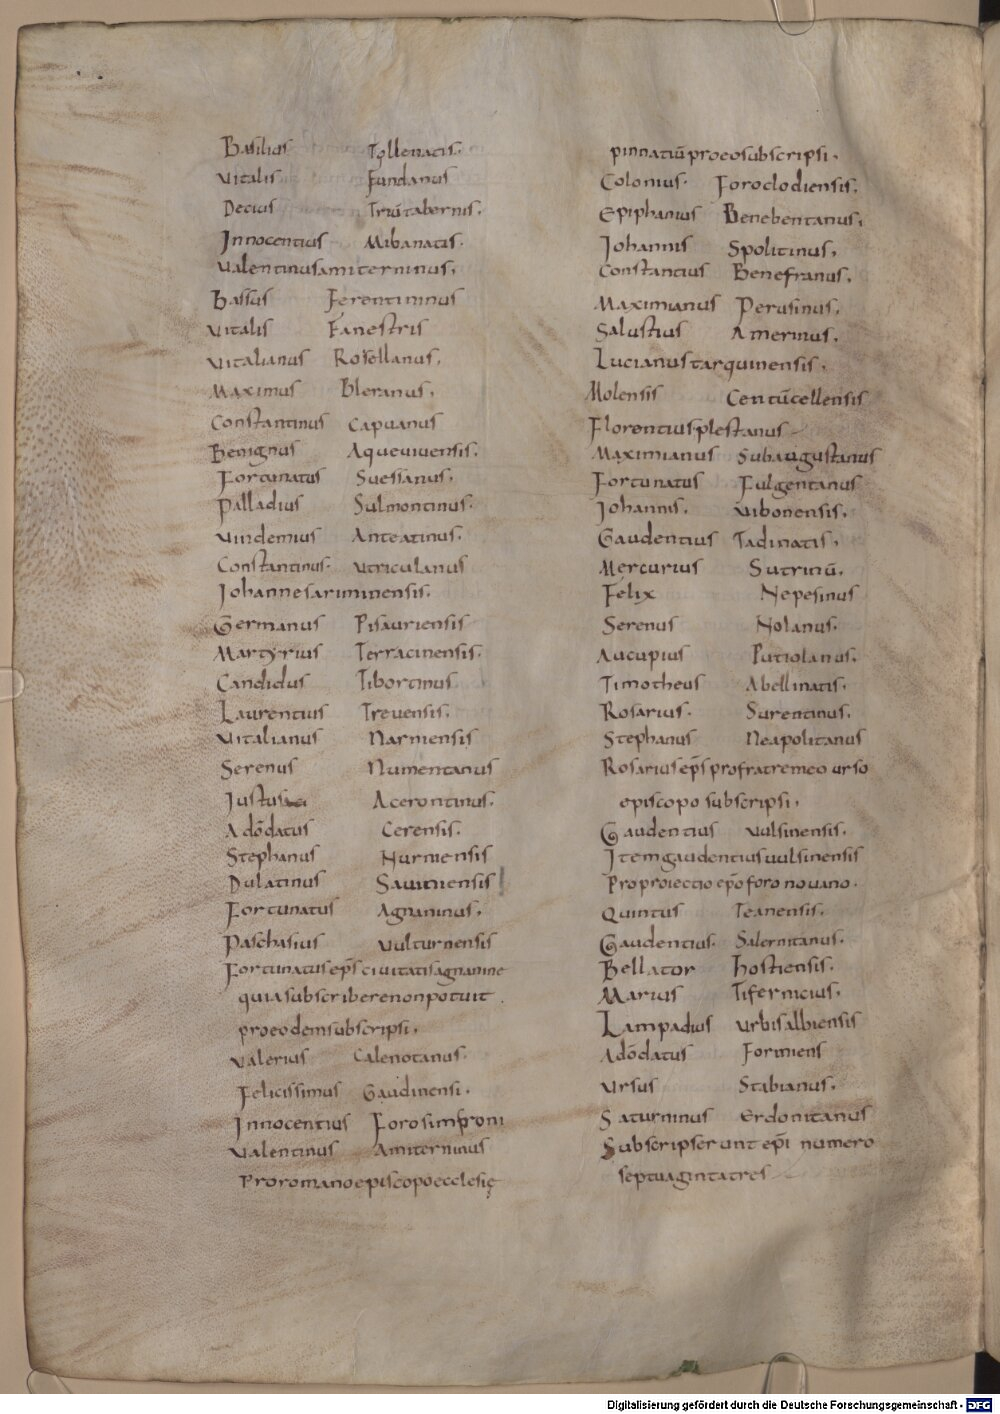 Basilius Tollenatis.
Vitalis Fundanus
Decius Triūtabernis.
Innocentius Mibanatis.
Valentinusamiterninus.
Bassus Ferentininus
Vitalis Fanestris
Vitalianus Rosellanus.
Maximus Bleranus.
Constantinus Capuanus
Benignus Aqueviuensis.
Fortunatus Suessanus.
Palladius Sulmontinus.
Vindemius Anteatinus.
Constantinus. Vtriculanus
Iohannesariminensis.
Germanus Pisauriensis
Martyrius Terracinensis.
Candidus Tibortinus
Laurentius Treuensis.
Vitalianus Narniensis
Serenus Numentanus
Iustus Acerontinus.
Adōdatus Cerensis.
Stephanus Nurniensis
Dulatinus
Fortunatus Agnaninus.
Paschasius Vulturnensis
Fortunatus ep̄s civitatisagnanine
quiasubscriberenonpotuit.
proeodemsubscripsi.
Valerius Calenotanus.
Felicissimus Gaudinensi.
Innocentius Forosimproni
Valentinus Amiterninus
Proromanoepiscopoecclesię
pinnatiūproeosubscripsi.
Colonius. Foroclodiensis.
Epiphanius Benebentanus.
Iohannis Spolitinus.
Constantius Benefranus.
Maximianus Perusinus.
Salustius Amerinus.
Lucianustarquinensis.
Molensis Centūcellensis
Florentiusplestanus
Maximianus Subaugustanus
Fortunatus Fulgentanus
Iohannis. Vibonensis.
Gaudentius Tadinatis.
Mercurius Sutrinū.
Felix Nepesinus
Serenus Nolanus.
Aucupius Putiolanus.
Timotheus Abellinatis.
Rosarius. Surentinus.
Stephanus Neapolitanus
Rosarius ep̄s profratremeo urso
episcopo subscripsi.
Gaudentius Vulsinensis.
Itemgaudentiusvulsinensis
Proproiectio ep̄o foro novano.
Quintus Teanensis.
Gaudentius. Salernitanus.
Bellator hostiensis.
Marius Tifernicius.
Lampadius Vrbisalbiensis
Adōdatus Formiens
Vrsus Stabianus.
Saturninus Erdonitanus
Subscripserunt ep̄i numero
septuagintatres
Digitalisierung gefördert durch die Deutsche Forschungsgemeinschaft - DFG